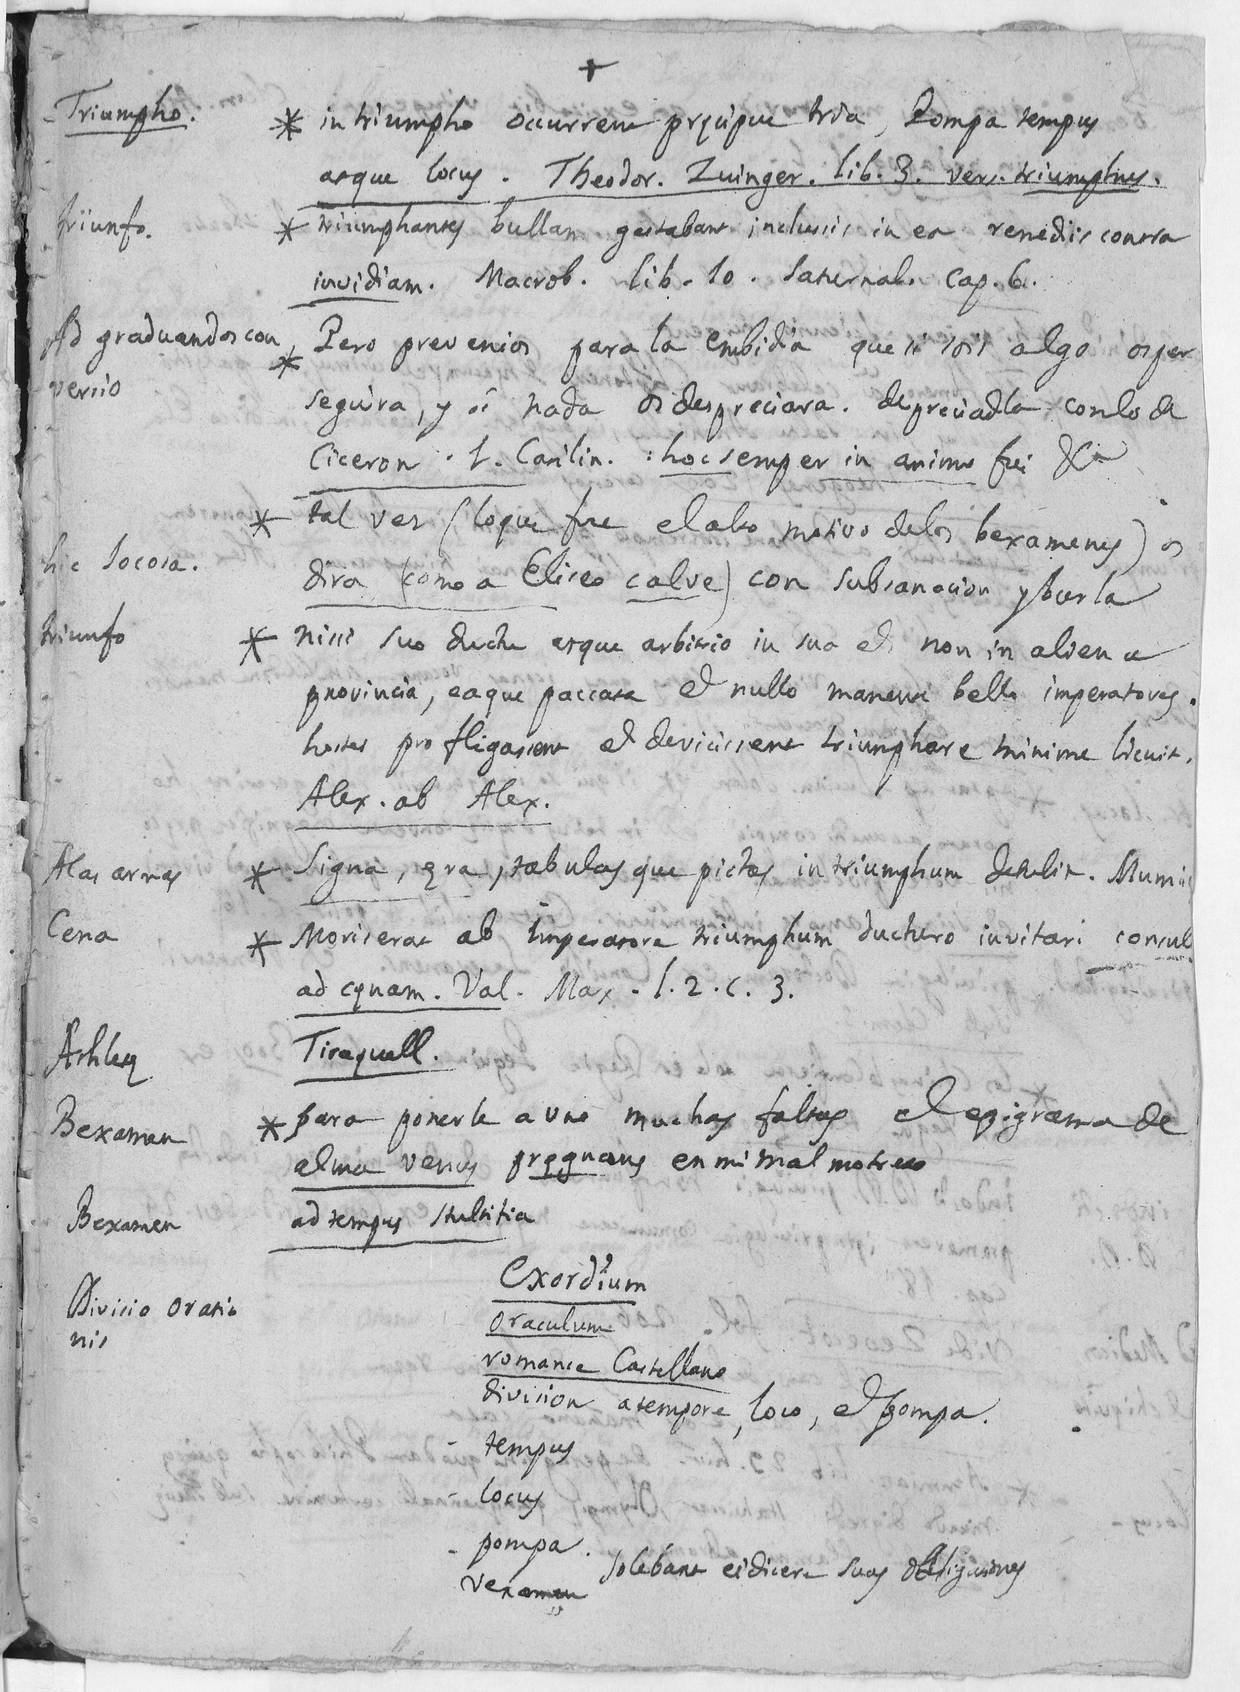 +
Triumpho. * in triumpho occurrent pręcipue tria, Pompa tempus
atque locus. Theodor. Zuinger. lib. 3. vers. triumphus.
triunfo. * triumphantes bullam gestabant inclussis in ea remediis contra
invidiam. Macrob. lib. 10. Saturnal. cap. 6.
Ad graduandos con * Pero prevenios para la embidia que si sois algo os per
versio seguira, y si nada os despreciara. depreciadla con lo de
Ciceron. 1. Catilin. : hoc semper in animo fui &c
* tal ves (loque fue el alto motivo delos bexamenes) os
hic Iocosa. dira (como a Eliseo calve) con subsanacion y burla
triunfo * nissi suo ductu atque arbitrio in sua et non in aliena
provincia, eaque paccata et nullo manente bello imperatores
hostes profligassent et devicissent triumphare minime licuit.
Alex. ab Alex.
Alas armas * Signa, ęra, tabulasque pictas in triumphum detulit. Mumi
Cena * Moris erat ab Imperatore triumphum ducturo invitari consul
ad cęnam. Val. Max. l. 2. c. 3.
Tiraquell.
Bexamen * para ponerle a uno muchas faltas el epigrama de
alma venus pręgnans en mi mal motreto
Bexamen ad tempus stultitia
Exordium
Divisio Oratio oraculum
nis romance Castellano
division a tempore, loco, et pompa.
- tempus
- locus
- pompa.
vexamen solebant eidicere suas obligasiones